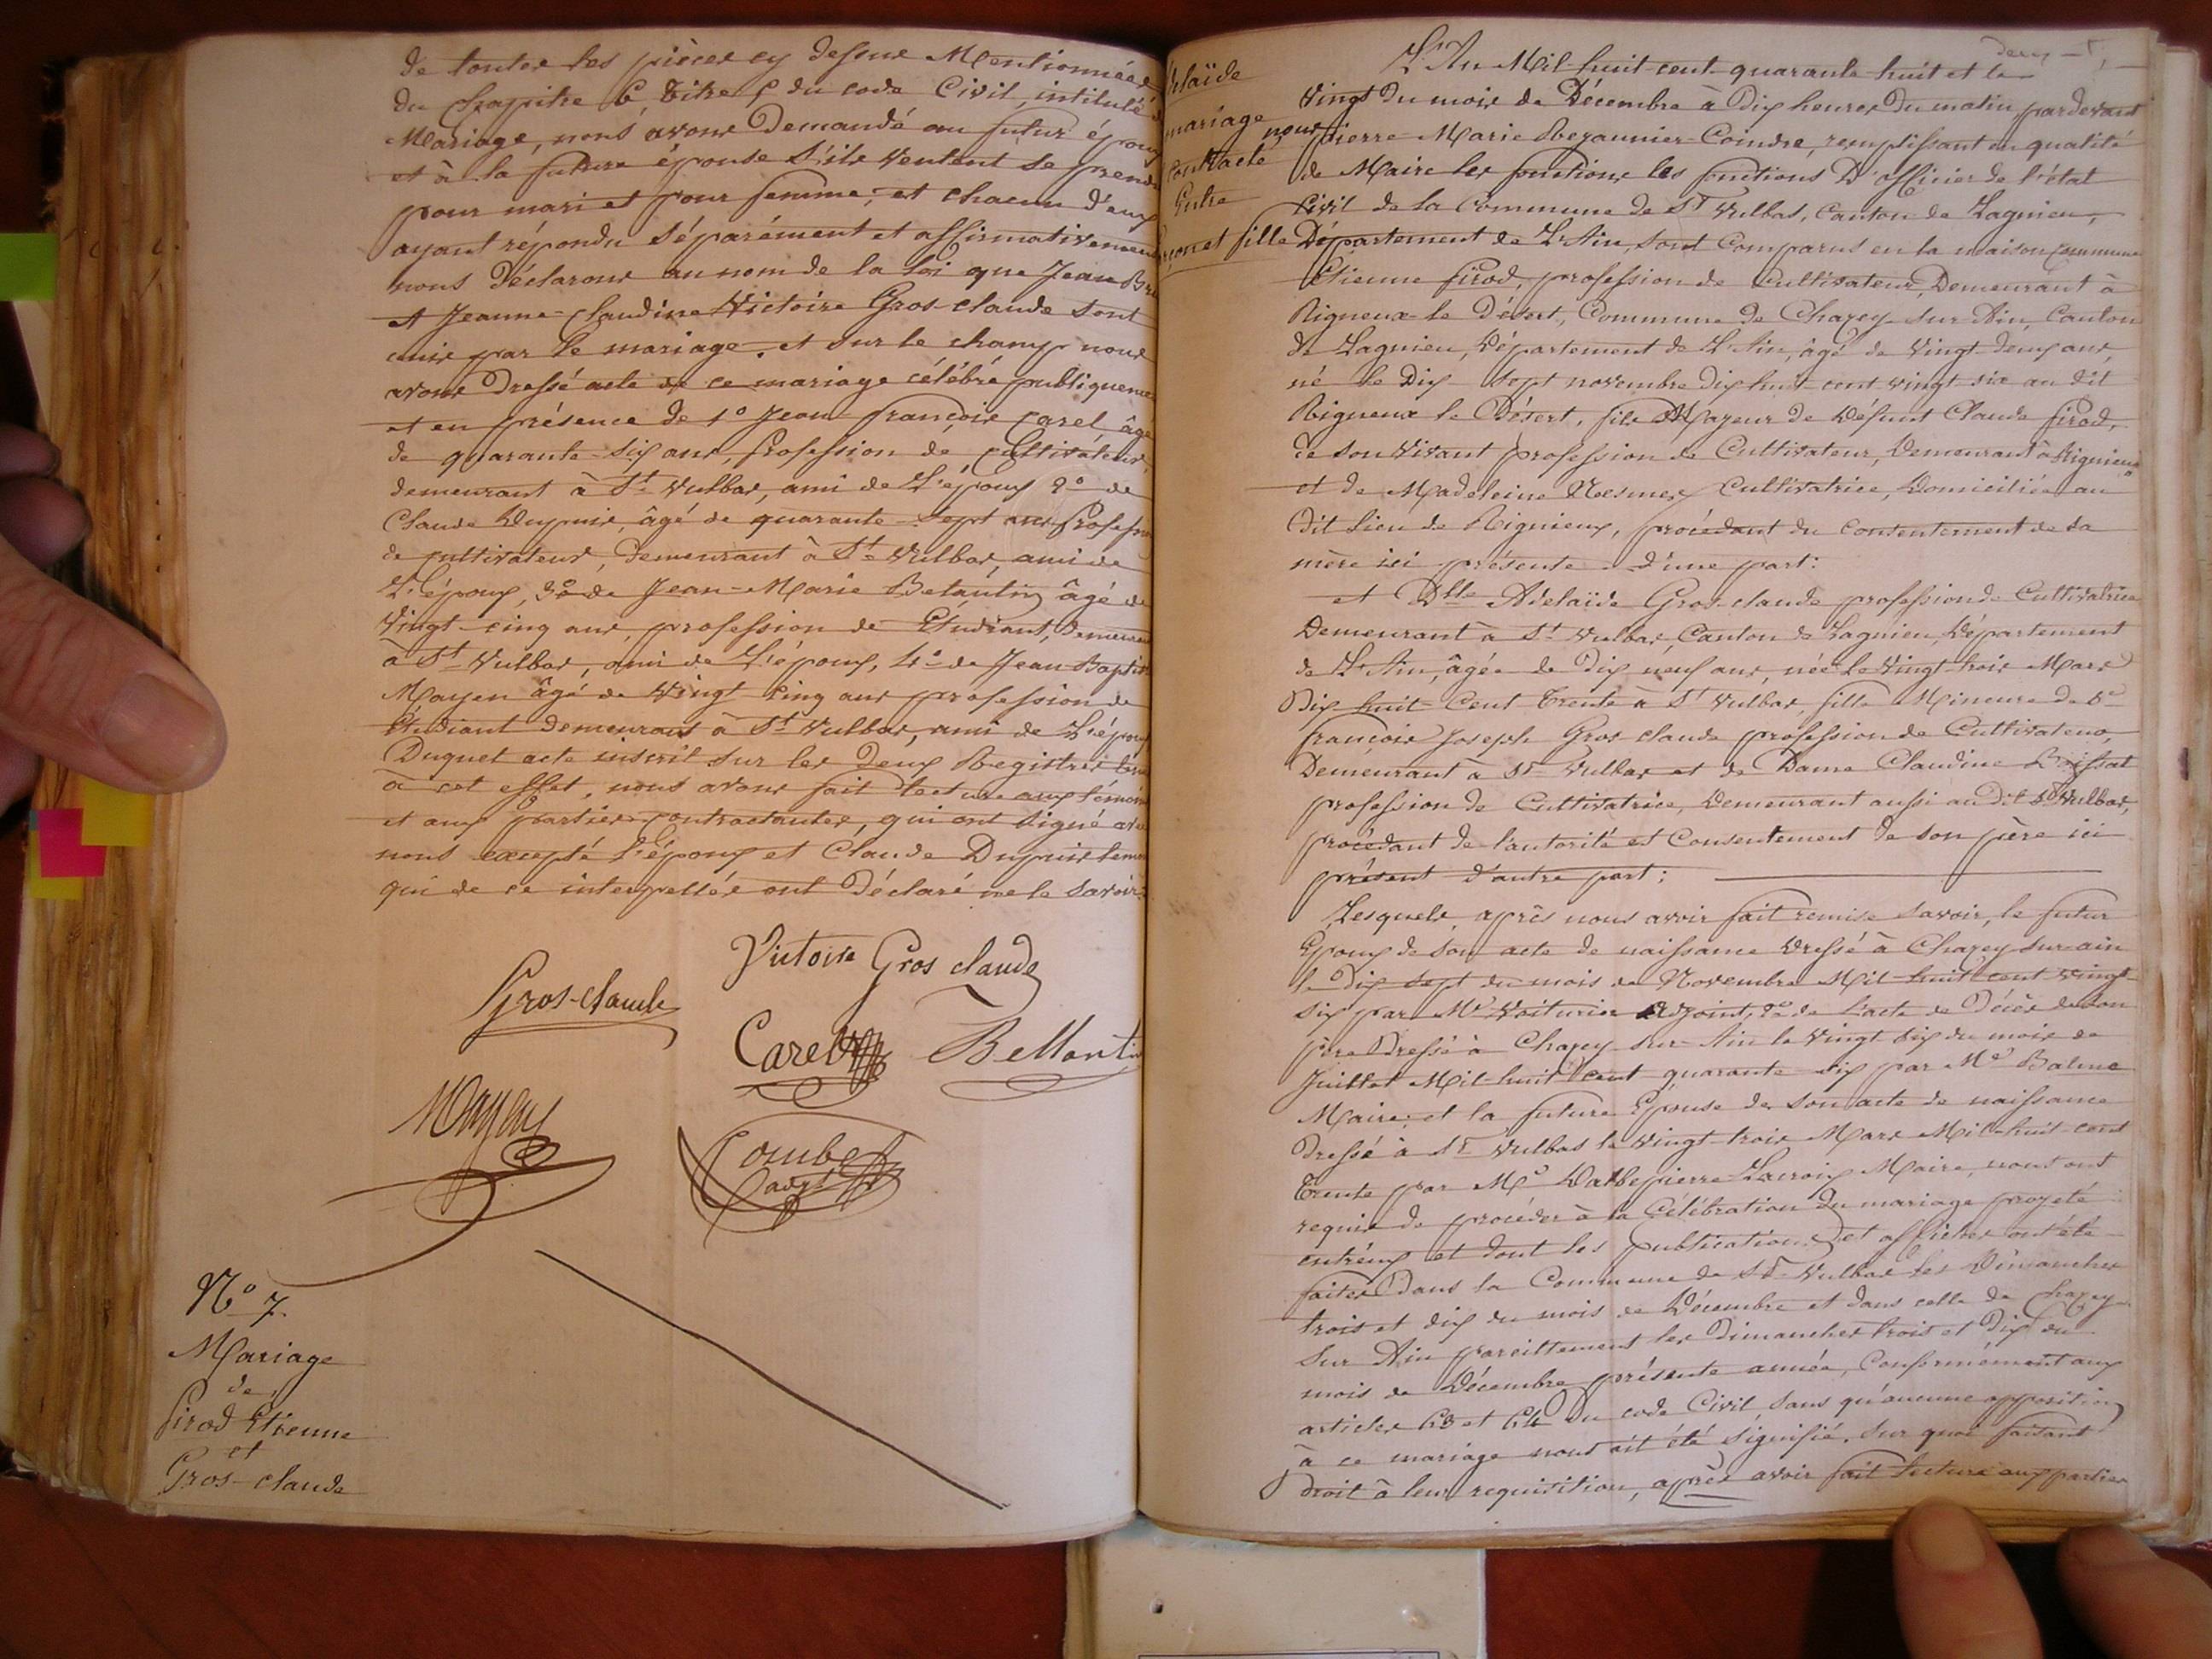 de toutes les pièces cy dessus Mentionnées
du chapitre 6 titre 5 du code Civil, intitulé
Mariage, nous avons Demandé au futur époux
et à la future épouse s'ils veulent se prendre
pour mari et pour femme; et chacun d'eux
ayant répondu séparément et affirmativement
nous Déclarons au nom de la loi que Jean
et Jeanne-Claudine Victoire Gros-claude sont
unis par le mariage. et sur le champ nous
avons Dressé acte de ce mariage célébré publiquement
et en présence de 1° Jean françois Carel âgé
de quarante-six ans, profession de Cultivateur
demeurant à St Vulbas, ami de L'époux 2° de
Claude Dupuis, âgé de quarante-sept ans profession
de cultivateur, demeurant à St Vulbas, ami de
L'époux, 3° de Jean-Marie Betantin âgé de
Vingt-cinq ans, profession de Etudiant, demeurant
à St Vulbas, ami de L'époux, 4° de Jean-Baptiste
Mayen âgé de Vingt cinq ans profession de
Etudiant demeurant à St Vulbas, ami de L'époux
Duquel acte inscrit sur les deux Registres
à cet effet, nous avons fait lecture aux témoins
et aux parties contractantes, qui ont signé avec
nous excepté L'époux et Claude Dupuis
qui de ce interpellés ont Déclaré ne le savoir.
Victoire Gros claude
Gros-claude
Carel
Bettantin
Mayen
Combe
N° 7.
Mariage
de
firod Etienne
et
Gros-claude
Adélaïde
mariage
Contracté
Entre
garçon et fille
L'An Mil-huit-cent-quarante-huit et le
Vingt du mois de Décembre à Dix heures Du matin, pardevant
nous pierre-Marie Coindre, remplissant en qualité
de Maire les fonctions les fonctions D'officier de l'état
Civil de la Commune de St Vulbas, Canton de Lagnieu,
Département de L'Ain, sont Comparus en la maison Commune
Etienne firod, profession de Cultivateur, Demeurant à
Rigneux-le Désert, Commune de Chazey-sur Ain, Canton
de Lagnieu, Département de L'Ain, âgé de Vingt-deux ans,
né le Dix sept novembre Dix huit cent vingt-six au dit
Rigneux le Désert, fils Majeur de Défunt Claude firod,
de son Vivant profession de Cultivateur, Demeurant à Rignieux
et de Madeleine Cultivatrice, Domiciliée au
dit Lieu de Rignieux, procédant du consentement de sa
mère ici présente d'une part:
et Dlle Adelaïde Gros-claude profession de Cultivatrice
Demeurant à St Vulbas, Canton de Lagnieu, Département
de L'Ain, âgée de Dix neuf ans, née le Vingt-trois Mars
Dix huit Cent Trente à St Vulbas, fille Mineure de Sr
françois Joseph Gros claude profession de Cultivateur,
Demeurant à St Vulbas et de Dame Claudine Boissat
profession de Cultivatrice, demeurant aussi au Dit St Vulbas,
procédant de l'autorité et Consentement de son père ici
présent d'autre part;
Lesquels, après nous avoir fait remise savoir, le futur
Epoux de son acte de naissance Dressé à Chazey-sur-ain
le Dix sept du mois de Novembre Mil-huit cent vingt-
six par Mr Voiturier Adjoint, 2° de l'acte de Décès de son
père Dressé à Chazey-sur-Ain le Vingt six du mois de
Juillet Mil-huit cent quarante-six par Mr Balme
Maire, et la future Epouse de son acte de naissance
Dressé à St Vulbas le Vingt-trois Mars Mil-huit-cent
Trente par Mr Dalbepierre-Lacroix Maire, nous ont
requis de procéder à la Célébration du mariage projeté
entr'eux et dont les publications et affiches ont été
faites Dans la Commune de St Vulbas les Dimanches
trois et dix du mois de Décembre et dans celle de Chazey
sur Ain pareillement les Dimanches trois et Dix du
mois de Décembre présente année, Conformément aux
articles 63 et 64 Du code Civil sans qu'aucune opposition
à ce mariage nous ait été signifié. Sur quoi faisant
Droit à leur requisition, après avoir fait lecture aux parties